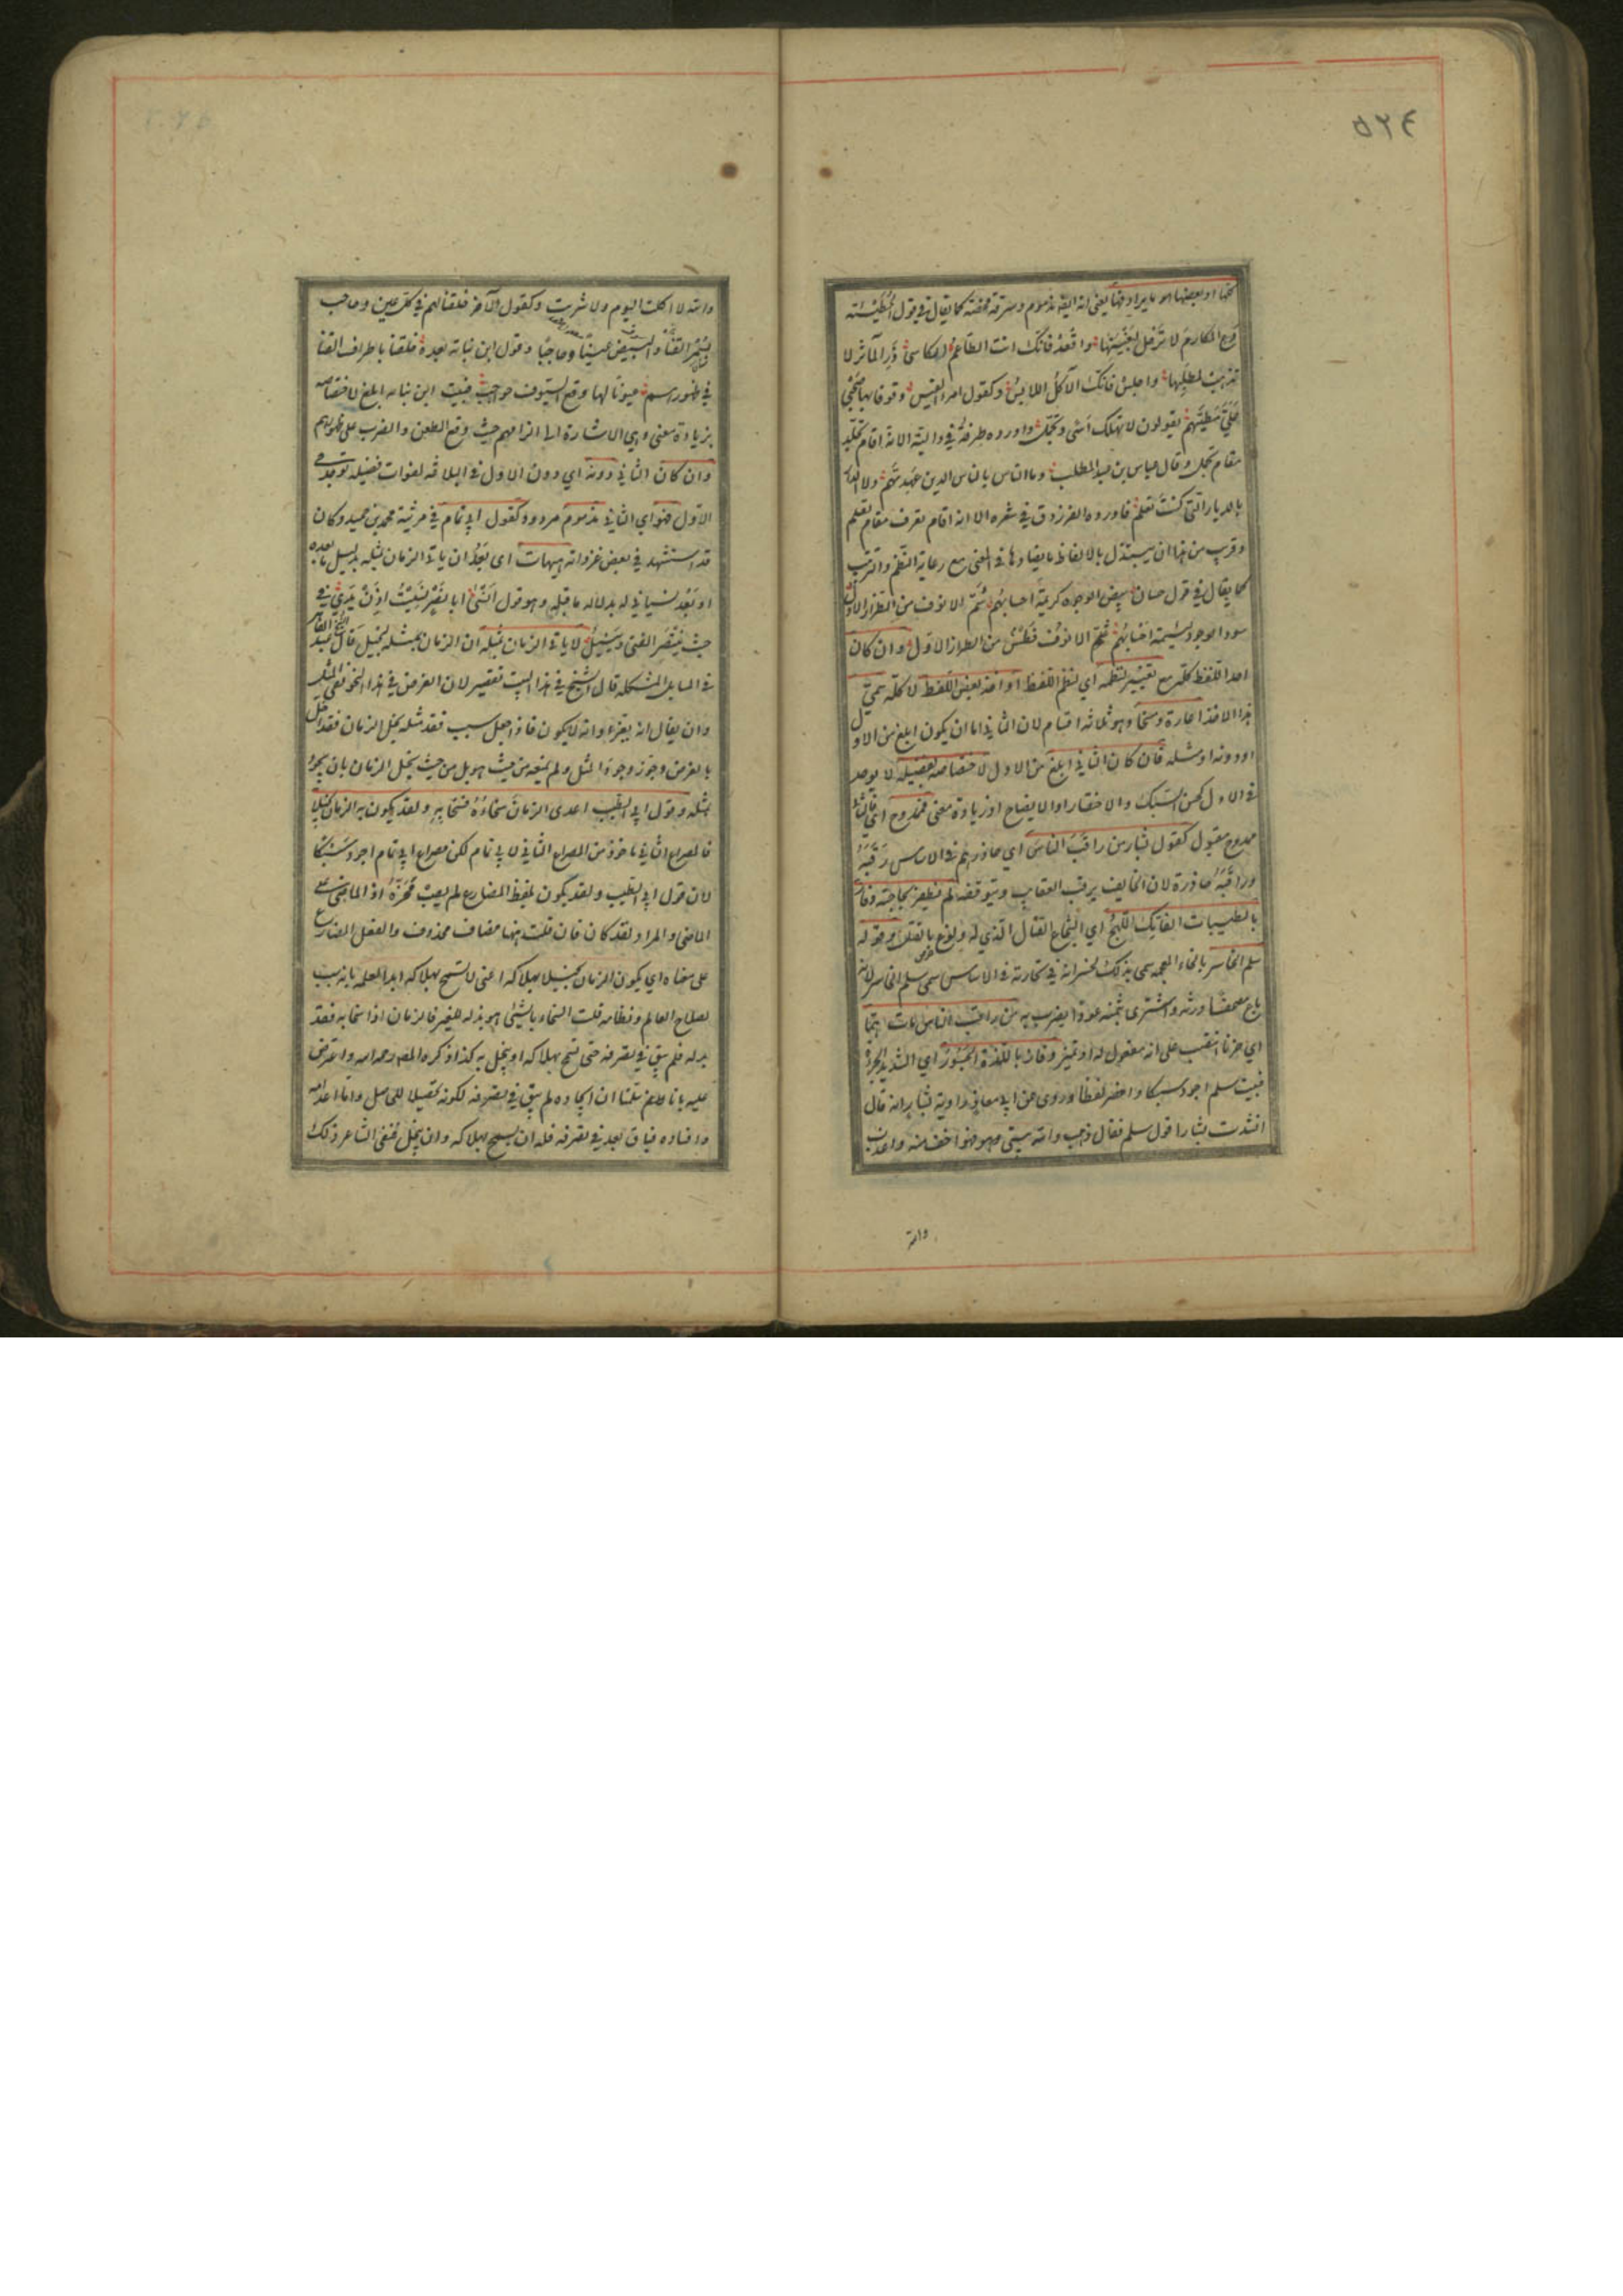 ٥٢٤
كلها او بعضها ما يرادفها يعني انه ايضا مذموم وسرقة محضة كما يقال في قول الحطيئة
دع المكارم لا ترحل لبغيتها واقعد فانك انت الطاعم الكاسي ذر المآثر لا
تذهب لمطلبها واجلس فانك الآكل اللابس وكقول امرء القيس وقوفا بها صحبي
علي مطيهم يقولون لا تهلك اسى وتجمل واورده طرفة في داليته الا انه اقام تجلد
مقام تجمل وقال عباس بن عبد المطلب وما الناس بالناس الذين عهدتهم ولا الدار
بالدار التي كنت تعلم فاورده الفرزدق في شعره الا انه اقام تعرف مقام تعلم
وقريب من هذا ان يستبدل بالالفاظ ما يضادها في المعنى مع رعاية النظم والترتيب
كما يقال في قول حسان بيض الوجوه كريمة احسابهم شم الانوف من الطراز الاول
سود الوجوه لئيمة احسابهم فطس الانوف من الطراز الاول وان كان
اخذ اللفظ كله مع تغيير لنظمه اي نظم اللفظ او اخذ بعض اللفظ لا كله سمي
هذا الاخذ اغارة ومسخا وهو ثلاثة اقسام لان الثاني اما ان يكون ابلغ من الاول
او دونه او مثله فان كان الثاني ابلغ من الاول لاختصاصه بفضيلة لا يوجد
في الاول كحسن السبك والاختصار او الايضاح او زيادة معنى فممدوح اي فالثاني
ممدوح مقبول كقول بشار من راقب الناس اي حاذرهم في الاساس رقبه
وراقبه حاذره لان الخايف يرقب العقاب ويتوقعه لم يظفر بحاجته وفاز
بالطيبات الفاتك اللهج اي الشجاع القتال الذي له ولوع بالقتل وقول
سلم الخاسر بالخاء المعجمة سمي بذلك لخسرانه في تجارته في الاساس سمي سلم الخاسر لانه
باع مصحفا ورثه واشترى بثمنه عودا يضرب به من راقب الناس مات هما
اي حزنا انتصب على انه مفعول له او تميز وفاز باللذة الجسور اي الشديد الجرأة
فبيت سلم اجود سبكا واخصر لفظا وروى عن ابي معاذ راوية بشار انه قال
انشدت بشارا قول سلم فقال ذهب والله بيتي فهو اخف منه واعذب
والله
والله لا اكلت اليوم ولا شربت وكقول الآخر خلقنا لهم في كل عين وحاجب
بسمر القنا والبيض عينا وحاجبا وقول ابن نباتة بعده خلقنا باطراف القنا
في ظهورهم عيونا لها وقع السيوف حواجب فبيت ابن نباتة ابلغ لاختصاصه
بزيادة معنى وهي الاشارة الى انهزامهم حيث وقع الطعن والضرب على ظهورهم
وان كان الثاني دونه اي دون الاول في البلاغة لفوات فضيلة توجد في
الاول فهو اي الثاني مذموم مردود كقول ابي تمام في مرثية محمد بن حميد وكان
قد استشهد في بعض غزواته هيهات اي بعد ان ياتي الزمان بمثله بدليل ما بعده
او بعد نسياني له بدلالة ما قبله وهو قول انسى ابا نصر نسيت اذن يدي في
حيث ينتصر الفتى وينيل لا ياتي الزمان بمثله ان الزمان بمثله لبخيل قال الشيخ عبد القاهر
في المسايل المشكلة قال الشيخ في هذا البيت تقصير لان الغرض في هذا النحو نفي المثل
وان يقال انه يعز وانه لا يكون فاذا جعل سبب فقد مثله بخل الزمان فقد اخل
بالغرض وجوز وجود المثل ولم يمنعه من حيث هو بل من حيث بخل الزمان بان يجود
بمثله وقول ابي الطيب اعدى الزمان سخاؤه فسخا به ولقد يكون به الزمان بخيلا
فالمصراع الثاني ماخوذ من المصراع الثاني لابي تمام لكن مصراع ابي تمام اجود سبكا
لان قول ابي الطيب ولقد يكون بلفظ المضارع لم يصب محزه اذ المعنى على
الماضي والمراد لقد كان فان قلت ههنا مضاف محذوف والفعل المضارع
على معناه اي يكون الزمان بخيلا بهلاكه اعني لا يسمح بهلاكه ابدا لعلمه بانه سبب
لصلاح العالم ونظامه قلت السخاء بالشيء هو بذله للغير فالزمان اذا سخا به فقد
بذله فلم يبق في تصرفه حتى يسمح بهلاكه او يبخل به كذا ذكره المصر رحمه الله واعترض
عليه بانا قلنا ان ايجاده لم يبق في تصرفه لكونه تحصيلا للحاصل واما اعدامه
وافناده فباق بعد في تصرفه فله ان يسمح بهلاكه وان يبخل فنفى الشاعر ذلك